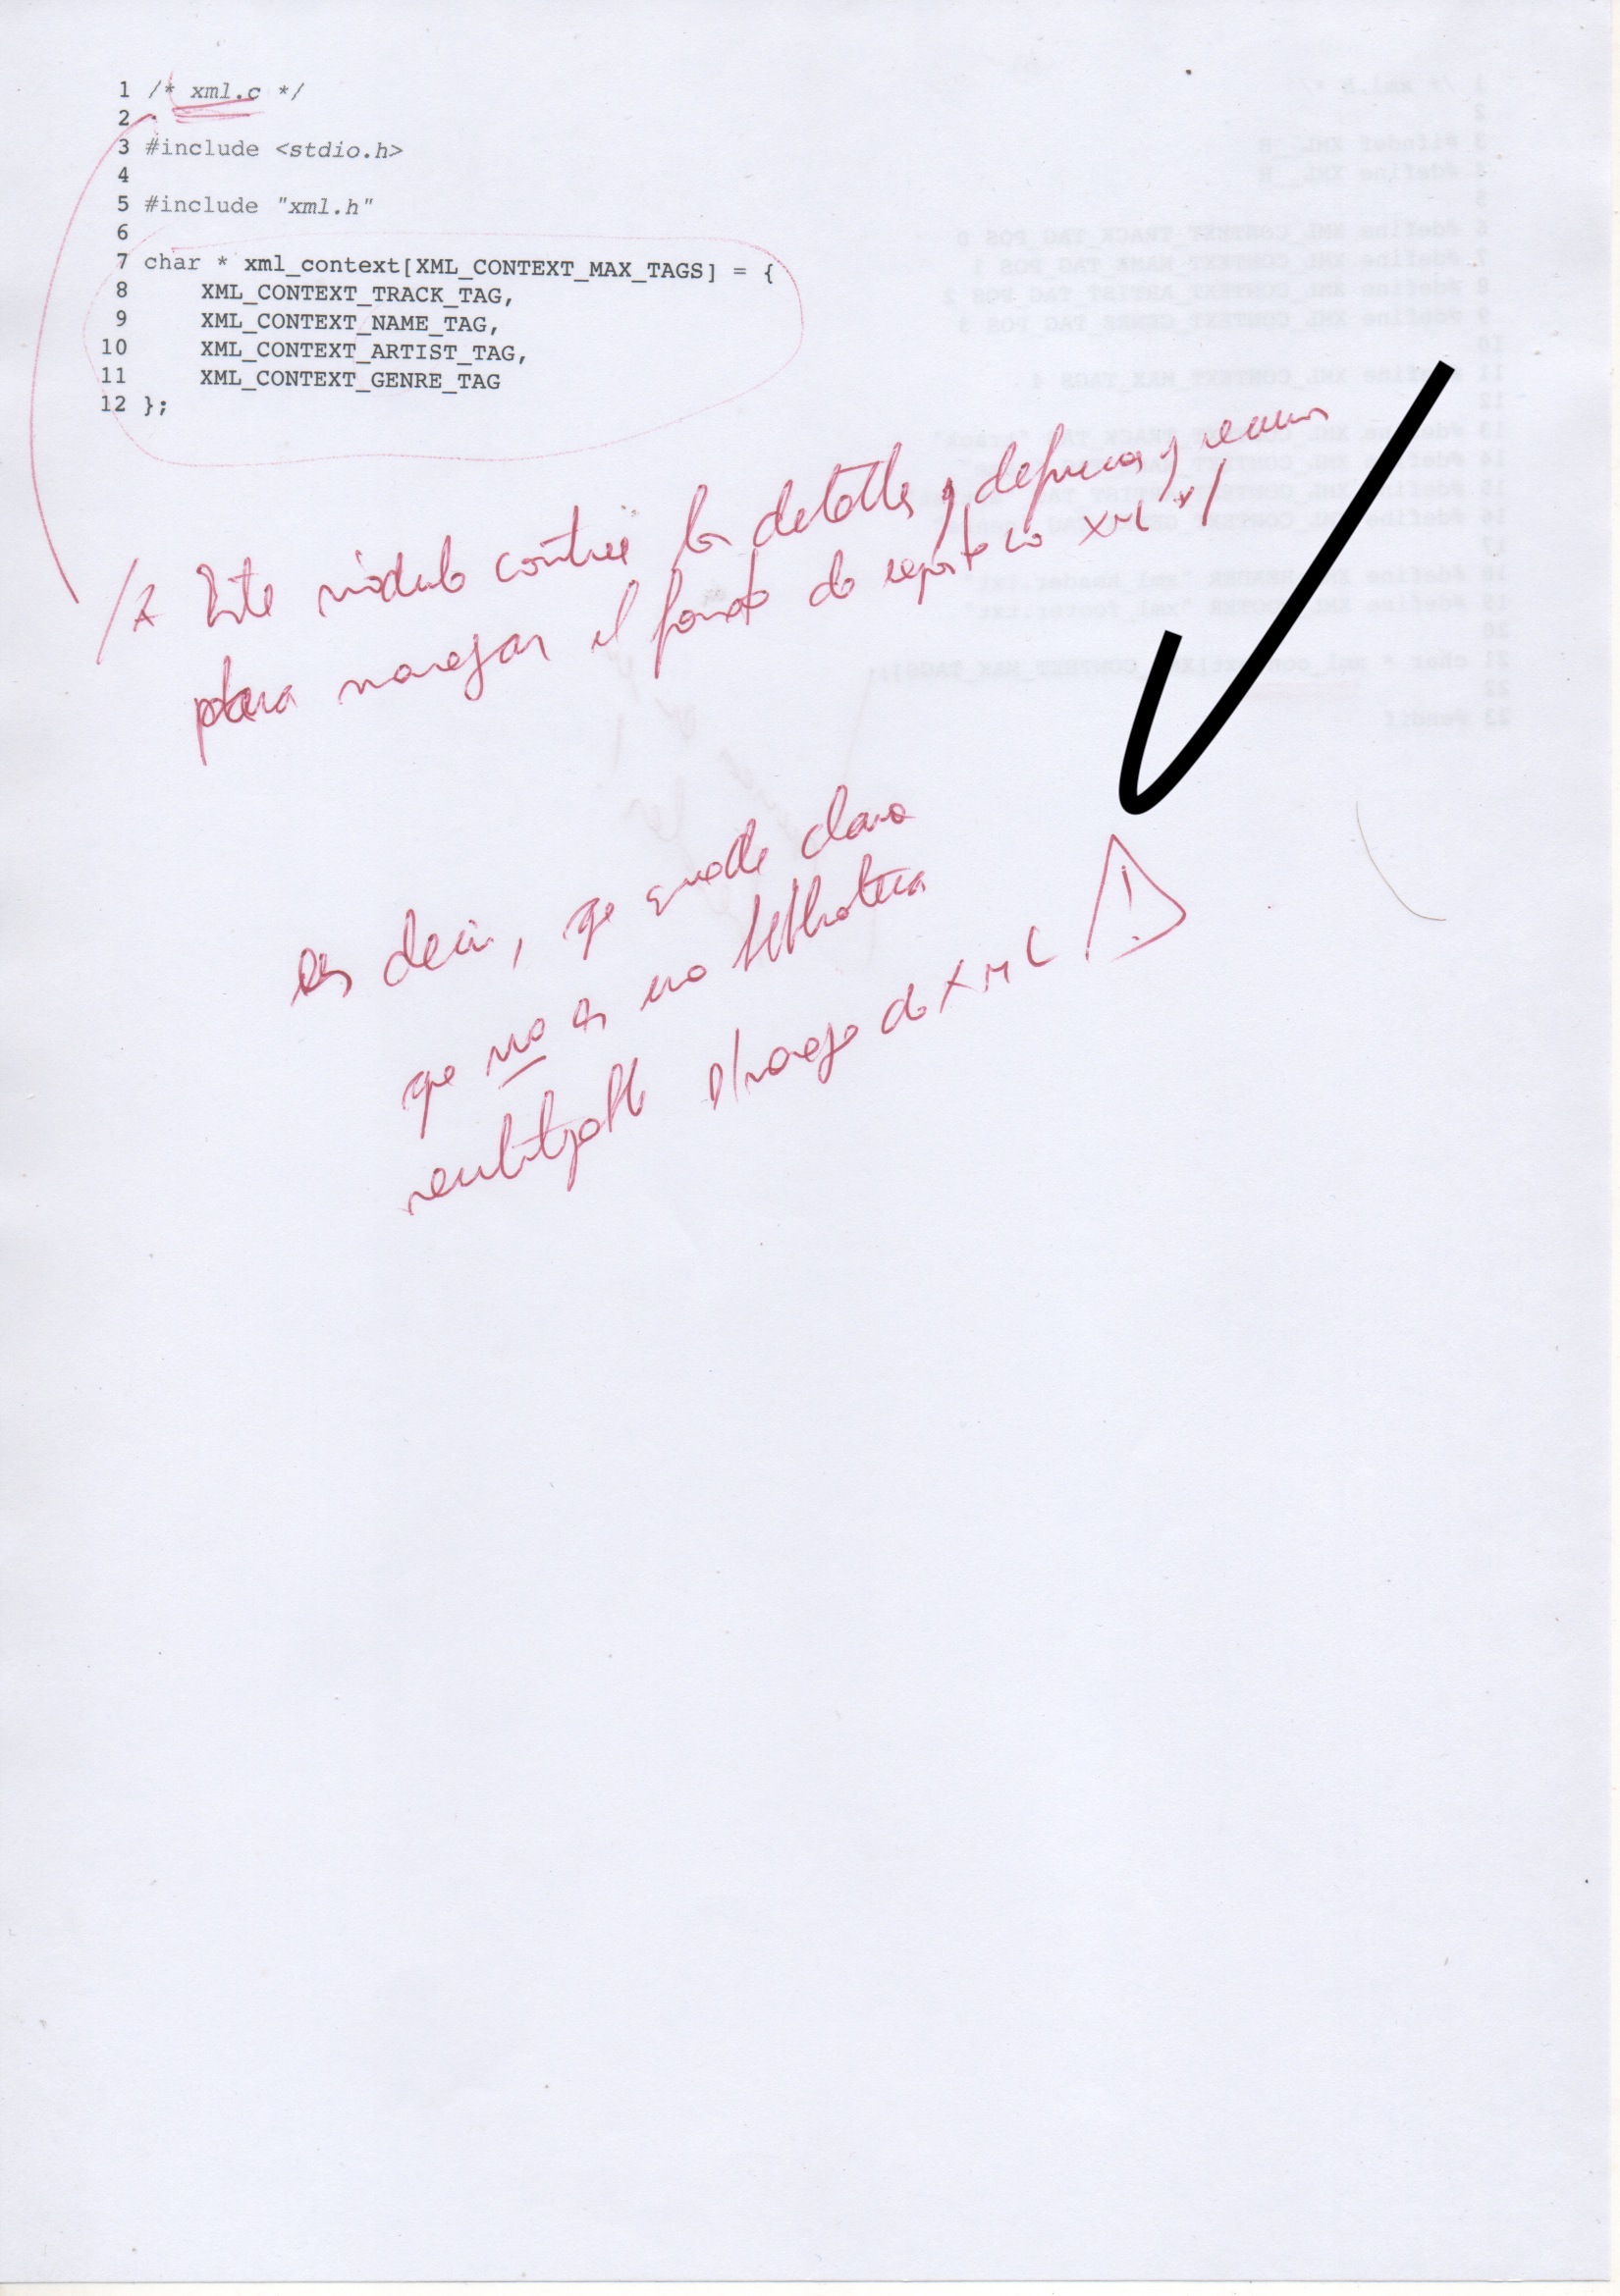 1 /* xml.c */
2
3 #include <stdio.h>
4
5 #include "xml.h"
6
7 char * xml_context[XML_CONTEXT_MAX_TAGS] = {
8 XML_CONTEXT_TRACK_TAG,
9 XML_CONTEXT_NAME_TAG,
10 XML_CONTEXT_ARTIST_TAG,
11 XML_CONTEXT_GENRE_TAG
12 };
/* Este módulo contiene los detalles, y
para manejar el formato de reporte XML */
es decir, que quede claro
que no es una biblioteca
reutilizable p/manejo de XML
!